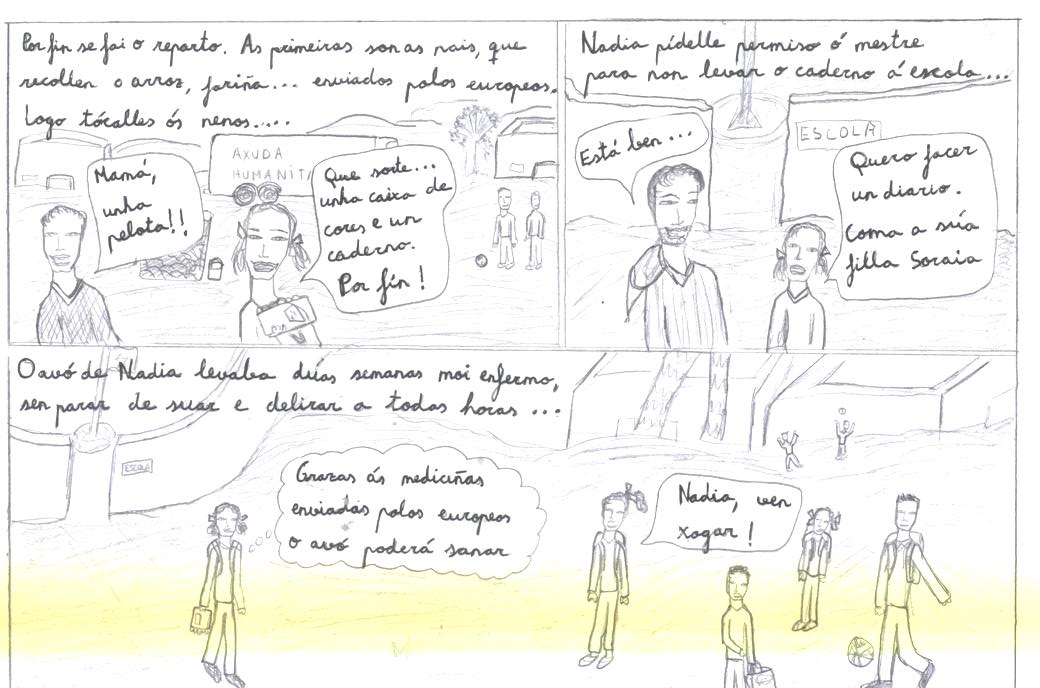 Por fin se fai o reparto. As primeiras son as nais, que
recollen o arroz, fariña... enviados polos europeos.
Logo tócalles ós nenos....
Mamá,
unha
pelota!!
AXUDA
HUMANIT
Que sorte...
unha caixa de
cores e un
caderno.
Por fin!
Nadia pídelle permiso ó mestre
para non levar o caderno á escola...
Está ben...
ESCOLA
Quero facer
un diario.
Coma a súa
filla Soraia
O avó de Nadia levaba dúas semanas moi enfermo,
sen parar de suar e delirar a todas horas...
ESCOLA
Grazas ás mediciñas
enviadas polos europeos
o avó poderá sanar
Nadia, ven
xogar!